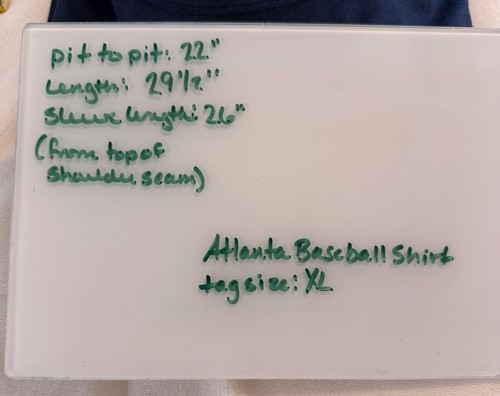 pit to pit: 22"
Length: 29 1/2"
Sleeve length: 26"
(from top of
shoulder seam)
Atlanta Baseball Shirt
tag size: XL